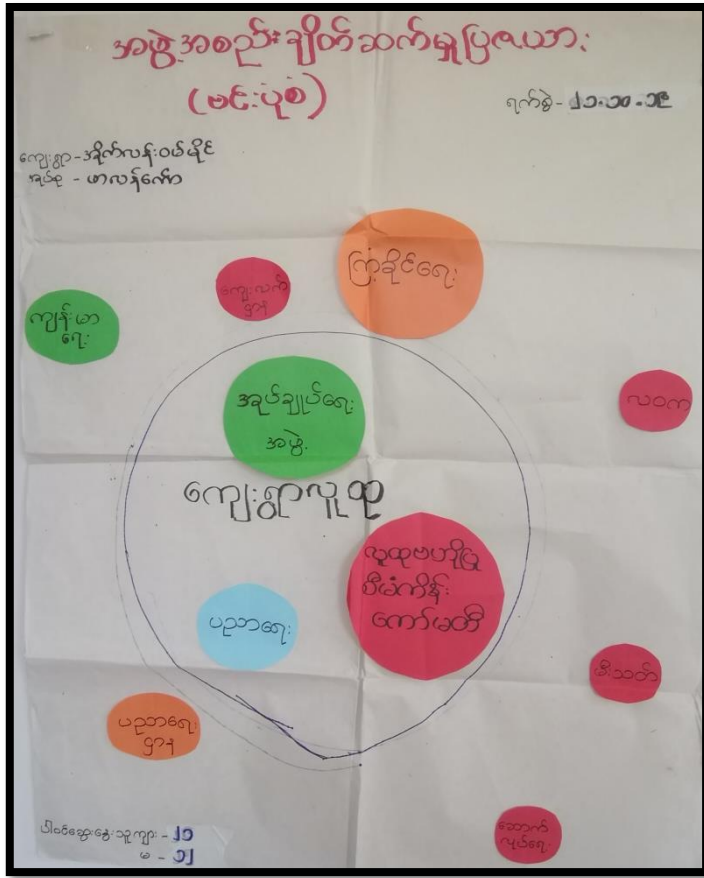 အဖွဲ့အစည်းချိတ်ဆက်မှုပြဇယား
(ဗင်းပုံစံ)
ရက်စွဲ- ၂၁.၁၀.၁၉
ကျေးရွာ -အိုက်လန်းဝမ်မိုင်
အုပ်စု - ဟာလန်ကော်
ကြံ့ခိုင်ရေး
ကျေးလက်
ဌာန
ကျန်းမာ
ရေး
အုပ်ချုပ်ရေး
အဖွဲ့
လဝက
ကျေးရွာလူထု
လူထုဗဟိုပြု
စီမံကိန်း
ကော်မတီ
ပညာရေး
မီးသတ်
ပညာရေး
ဌာန
ဆောက်
လုပ်ရေး
ပါဝင်ဆွေးနွေးသူကျား - ၂၁
မ - ၁၂